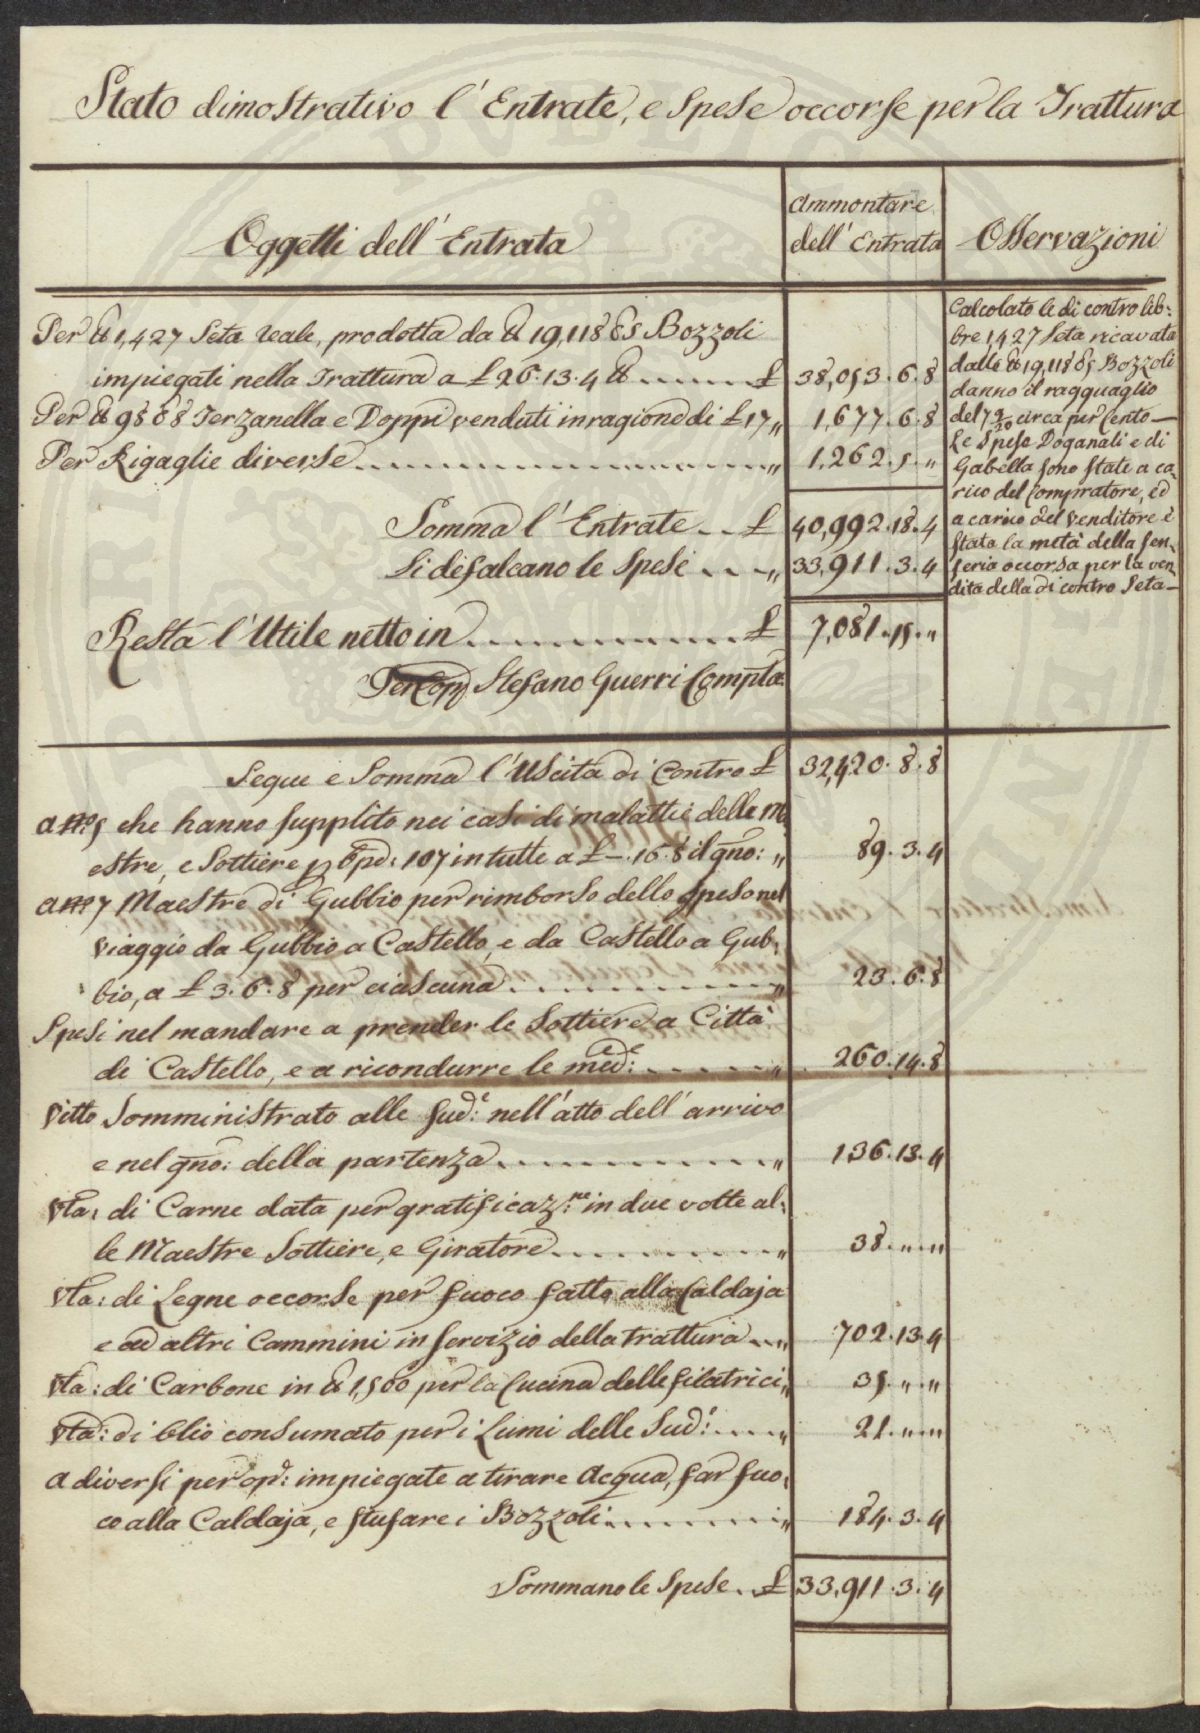 Stato dimostrativo l'Entrate, e Spese occorse per la Trattura
Oggetti dell'Entrata
Ammontare
dell'Entrata
Osservazioni
Per ℔ 1,427 Seta reale, prodotta da ℔ 19,118 85 Bozzoli
impiegati nella Trattura a £ 26.13.4 ℔ £ 38,053.6.8
Per ℔ 98 88 Terzanella e Doppi venduti in ragione di £ 17 „ 1,677.6.8
Per Rigaglie diverse „ 1,262.5.„
Somma l'Entrate £ 40,992.18.4
Si difalcano le Spese „ 33,911.3.4
Resta l'Utile netto in £ 7,081.15.„
Stefano Guerri Compta
Calcolato le di contro lib:
bre 1,427 Seta ricavata
dalle ℔ 19,118 85 Bozzoli
danno il ragguaglio
del 7 9/20 circa per Cento —
Le Spese Doganali e di
Gabella sono state a ca,
rico del Compratore, ed
a carico del Venditore è
stata la metà della sen,
seria occorsa per la ven,
dita della di contro Seta —
Segue e Somma l'Uscita di Contro £ 32,420.8.8
A No 5 che hanno supplito nei casi di malattie delle Ma
estre, e Sottiere p Opd: 107 in tutte a £ —.16.8 il gno: „ 89.3.4
A No 7 Maestre di Gubbio per rimborso dello speso nel
viaggio da Gubbio a Castello, e da Castello a Gub:
bio, a £ 3.6.8 per ciascuna „ 23.6.8
Spesi nel mandare a prender le Sottiere a Città
di Castello, e a ricondurre le mede: „ 260.14.8
Vitto Somministrato alle sude: nell'atto dell'arrivo
e nel gno: della partenza „ 136.13.4
Vta: di Carne data per gratificazne: in due volte al:
le Maestre Sottiere, e Giratore „ 38.„.„
Vta: di Legne occorse per fuoco fatto alla Caldaja
e ad altri Cammini in servizio della trattura „ 702.13.4
Vta: di Carbone in ℔ 1,500 per la Cucina delle filatrici „ 35.„.„
Vta: di Olio consumato per i Lumi delle Sude: „ 21.„.„
A diversi per opd: impiegate a tirare Acqua, far fuo,
co alla Caldaja, e stufare i Bozzoli „ 184.3.4
Sommano le Spese £ 33,911.3.4